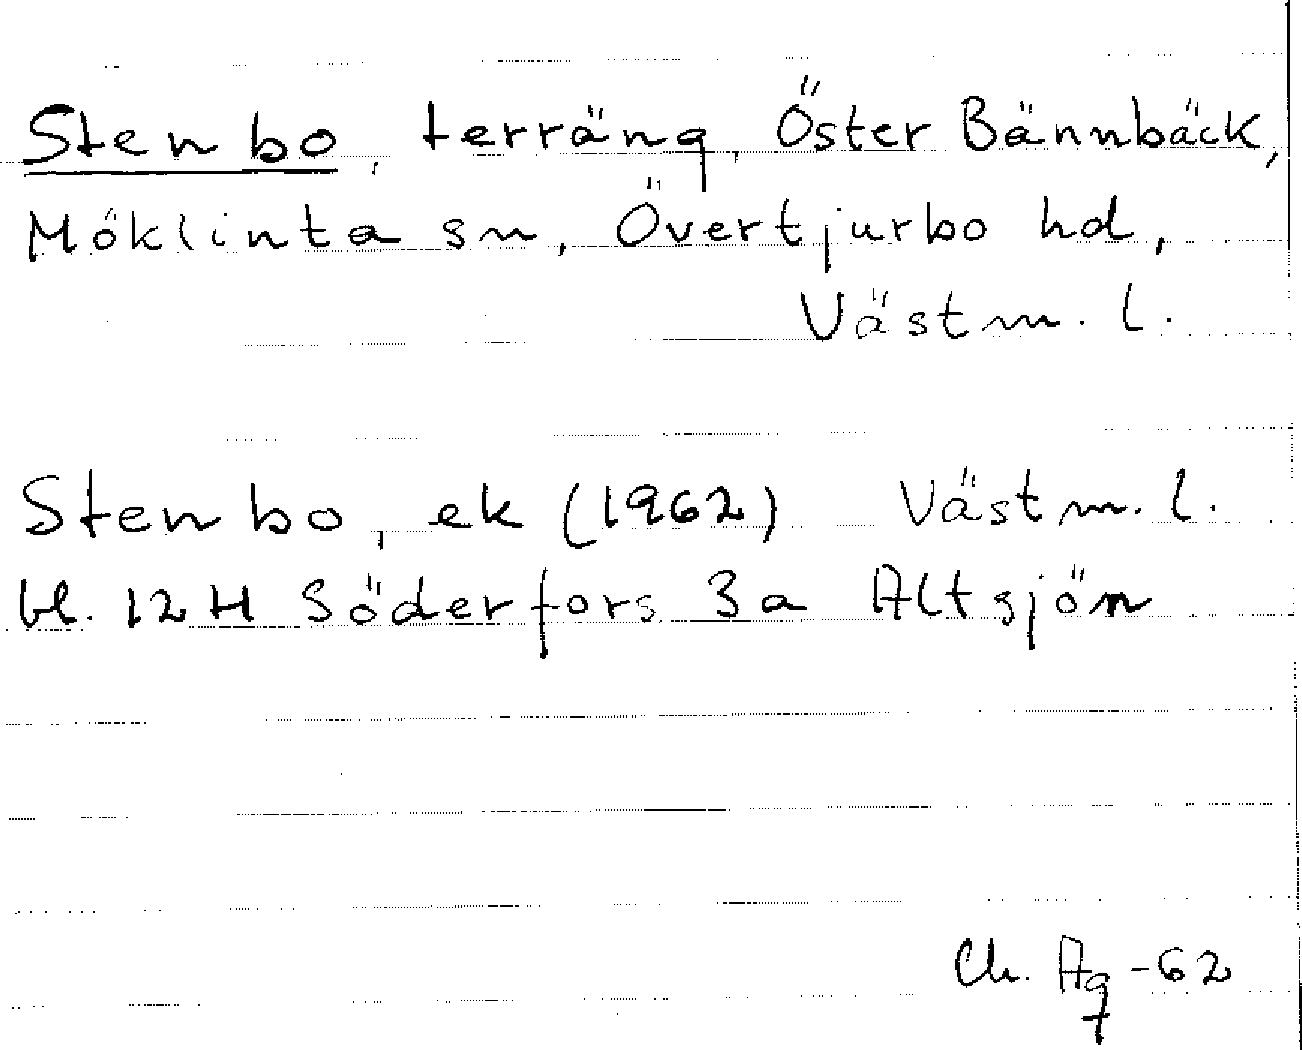 Stenbo, terräng, Öster Bännbäck,
Möklinta sn, Övertjurbo hd,
Västm. l.
Stenbo, ek (1962) Västm. l.
bl. 12H Söderfors 3a Altsjön
Ch. Ag -62